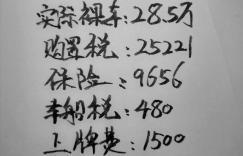 实际裸车:28.5万
购置税:25221
保险:9656
车船税:480
上牌费:1500